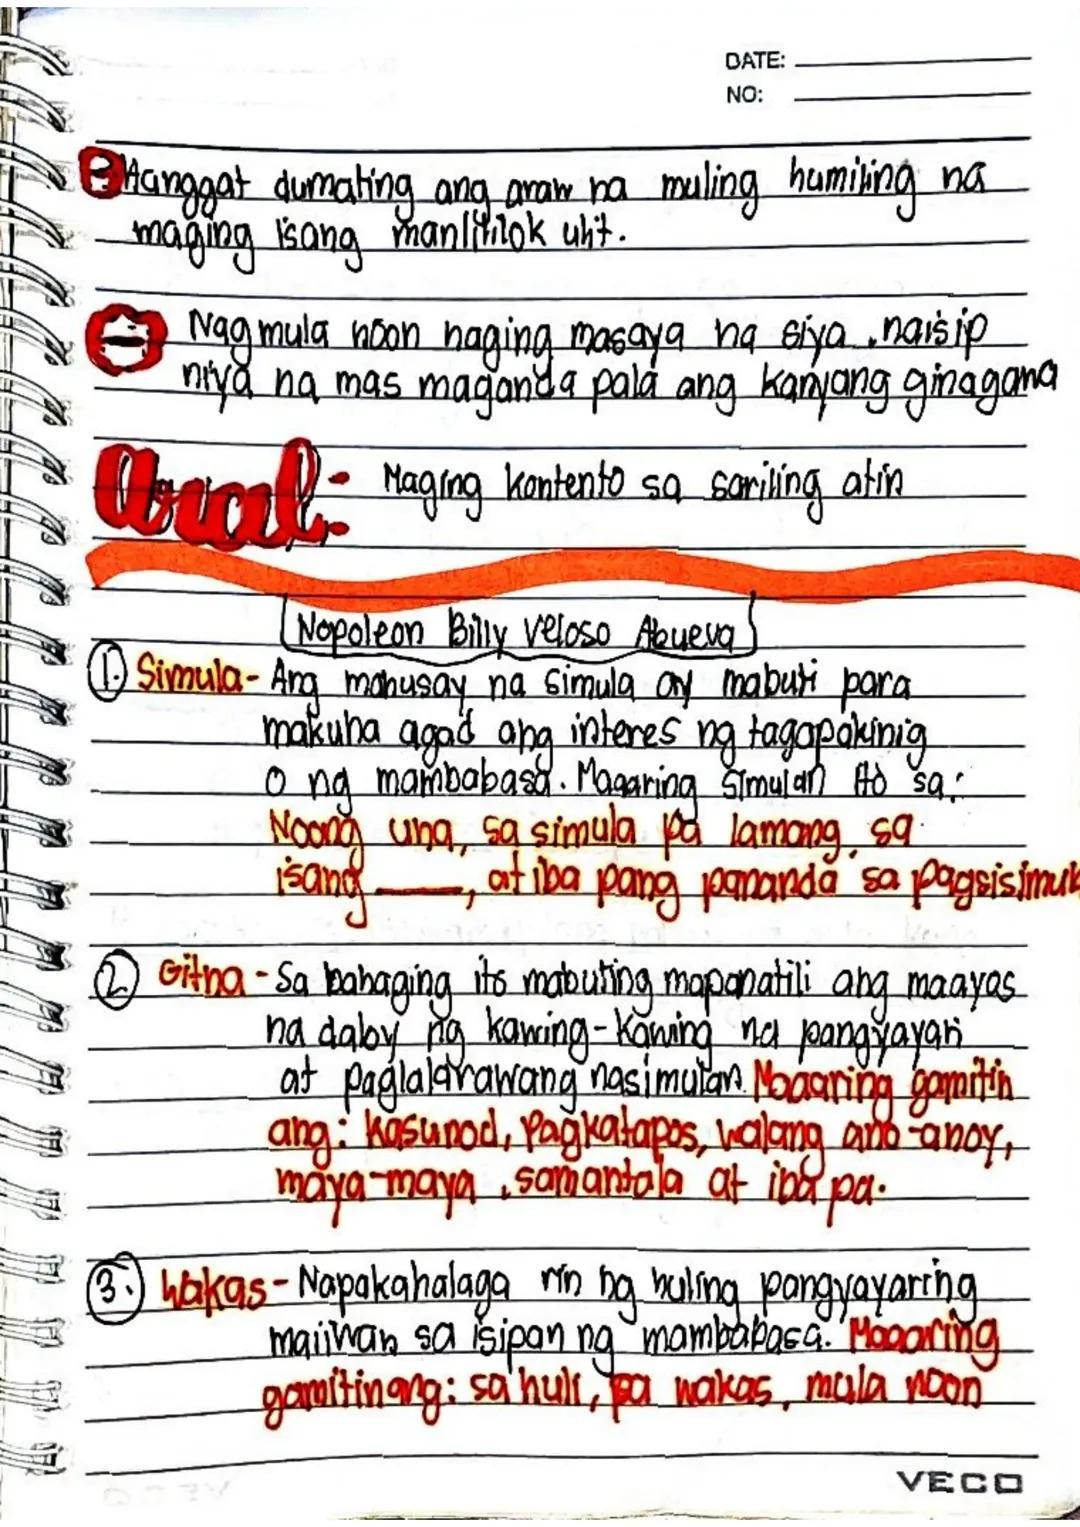 DATE:
NO:
Hanggat dumating ang araw na muling humiling na
maging isang manlililok ulit.
Nagmula noon naging masaya na siya, naisip
niya na mas maganda pala ang kanyang ginagawa
aral: Maging kontento sa sariling atin
Napoleon Billy Veloso Abueva
1. Simula- Ang mahusay na simula ay mabuti para
makuha agad ang interes ng tagapakinig
o ng mambabasa. Maaaring simulan ito sa:
Noong una, sa simula pa lamang, sa
isang ____, at iba pang pananda sa pagsisimula
2 Gitna - Sa bahaging ito mabuting mapanatili ang maayos
na daloy ng kawing-kawing na pangyayari
at paglalarawang nasimulan. Maaaring gamitin
ang: kasunod, pagkatapos, walang ano-anoy,
maya-maya, samantala at iba pa.
3. Wakas- Napakahalaga rin ng huling pangyayaring
maiiwan sa isipan ng mambabasa. Maaaring
gamitin ang: sa huli, sa wakas, mula noon
VECO